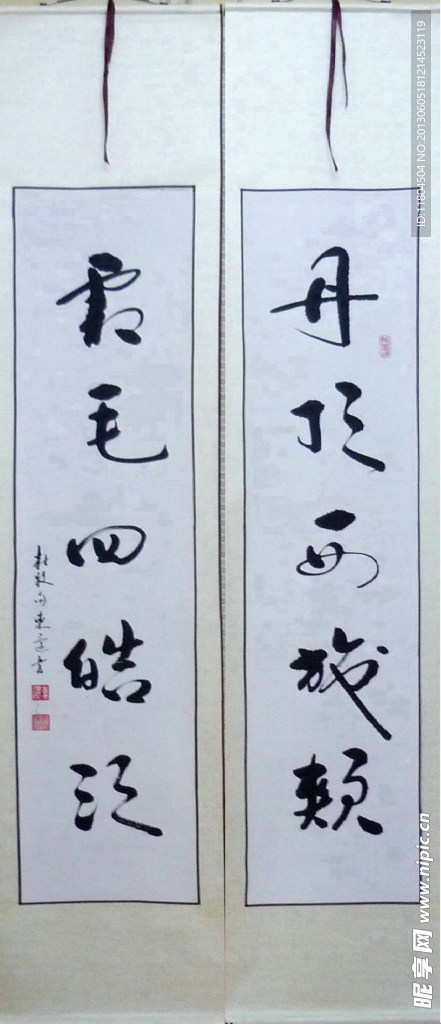 丹顶西施颊
霜毛四皓须
杜牧句東
ID:11804504 NO:20130605181214523119
昵享网 www.nipic.cn